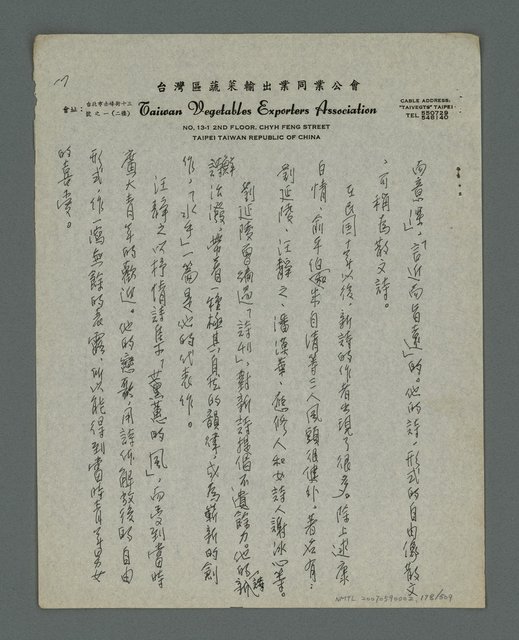 17
台灣區蔬菜輸出業同業公會
會址：台北市赤峰街十三號之一（二樓）
Taiwan Vegetables Exporters Association
CABLE ADDRESS:
"TAIVEGTS" TAIPEI
TEL 550729
548140
NO. 13-1 2ND FLOOR, CHYH FENG STREET
TAIPEI TAIWAN REPUBLIC OF CHINA
而意深」,「言近而旨遠」的。他的詩,形式的自由像散文
,可稱為散文詩。
在民國十年以後,新詩的作者出現了很多。除上述康
白情、俞平伯和朱自清等三人風頭很健外,著名有:
劉延陵、汪靜之、潘漠華、應修人和女詩人謝冰心等。
劉延陵曾編過「詩刊」,對新詩提倡不遺餘力他的新詩
鮮活潑,帶着一種極其自然的韻律,成為嶄新的創
作,「水手」一篇是他的代表作。
汪靜之以抒情詩集「蕙的風」,而受到當時
廣大青年的歡迎。他的戀歌,用詩体解放後的自由
形式,作一瀉無餘的表露,所以能得到當時青年男女
的喜愛。
NMTL 20070590002 178/309